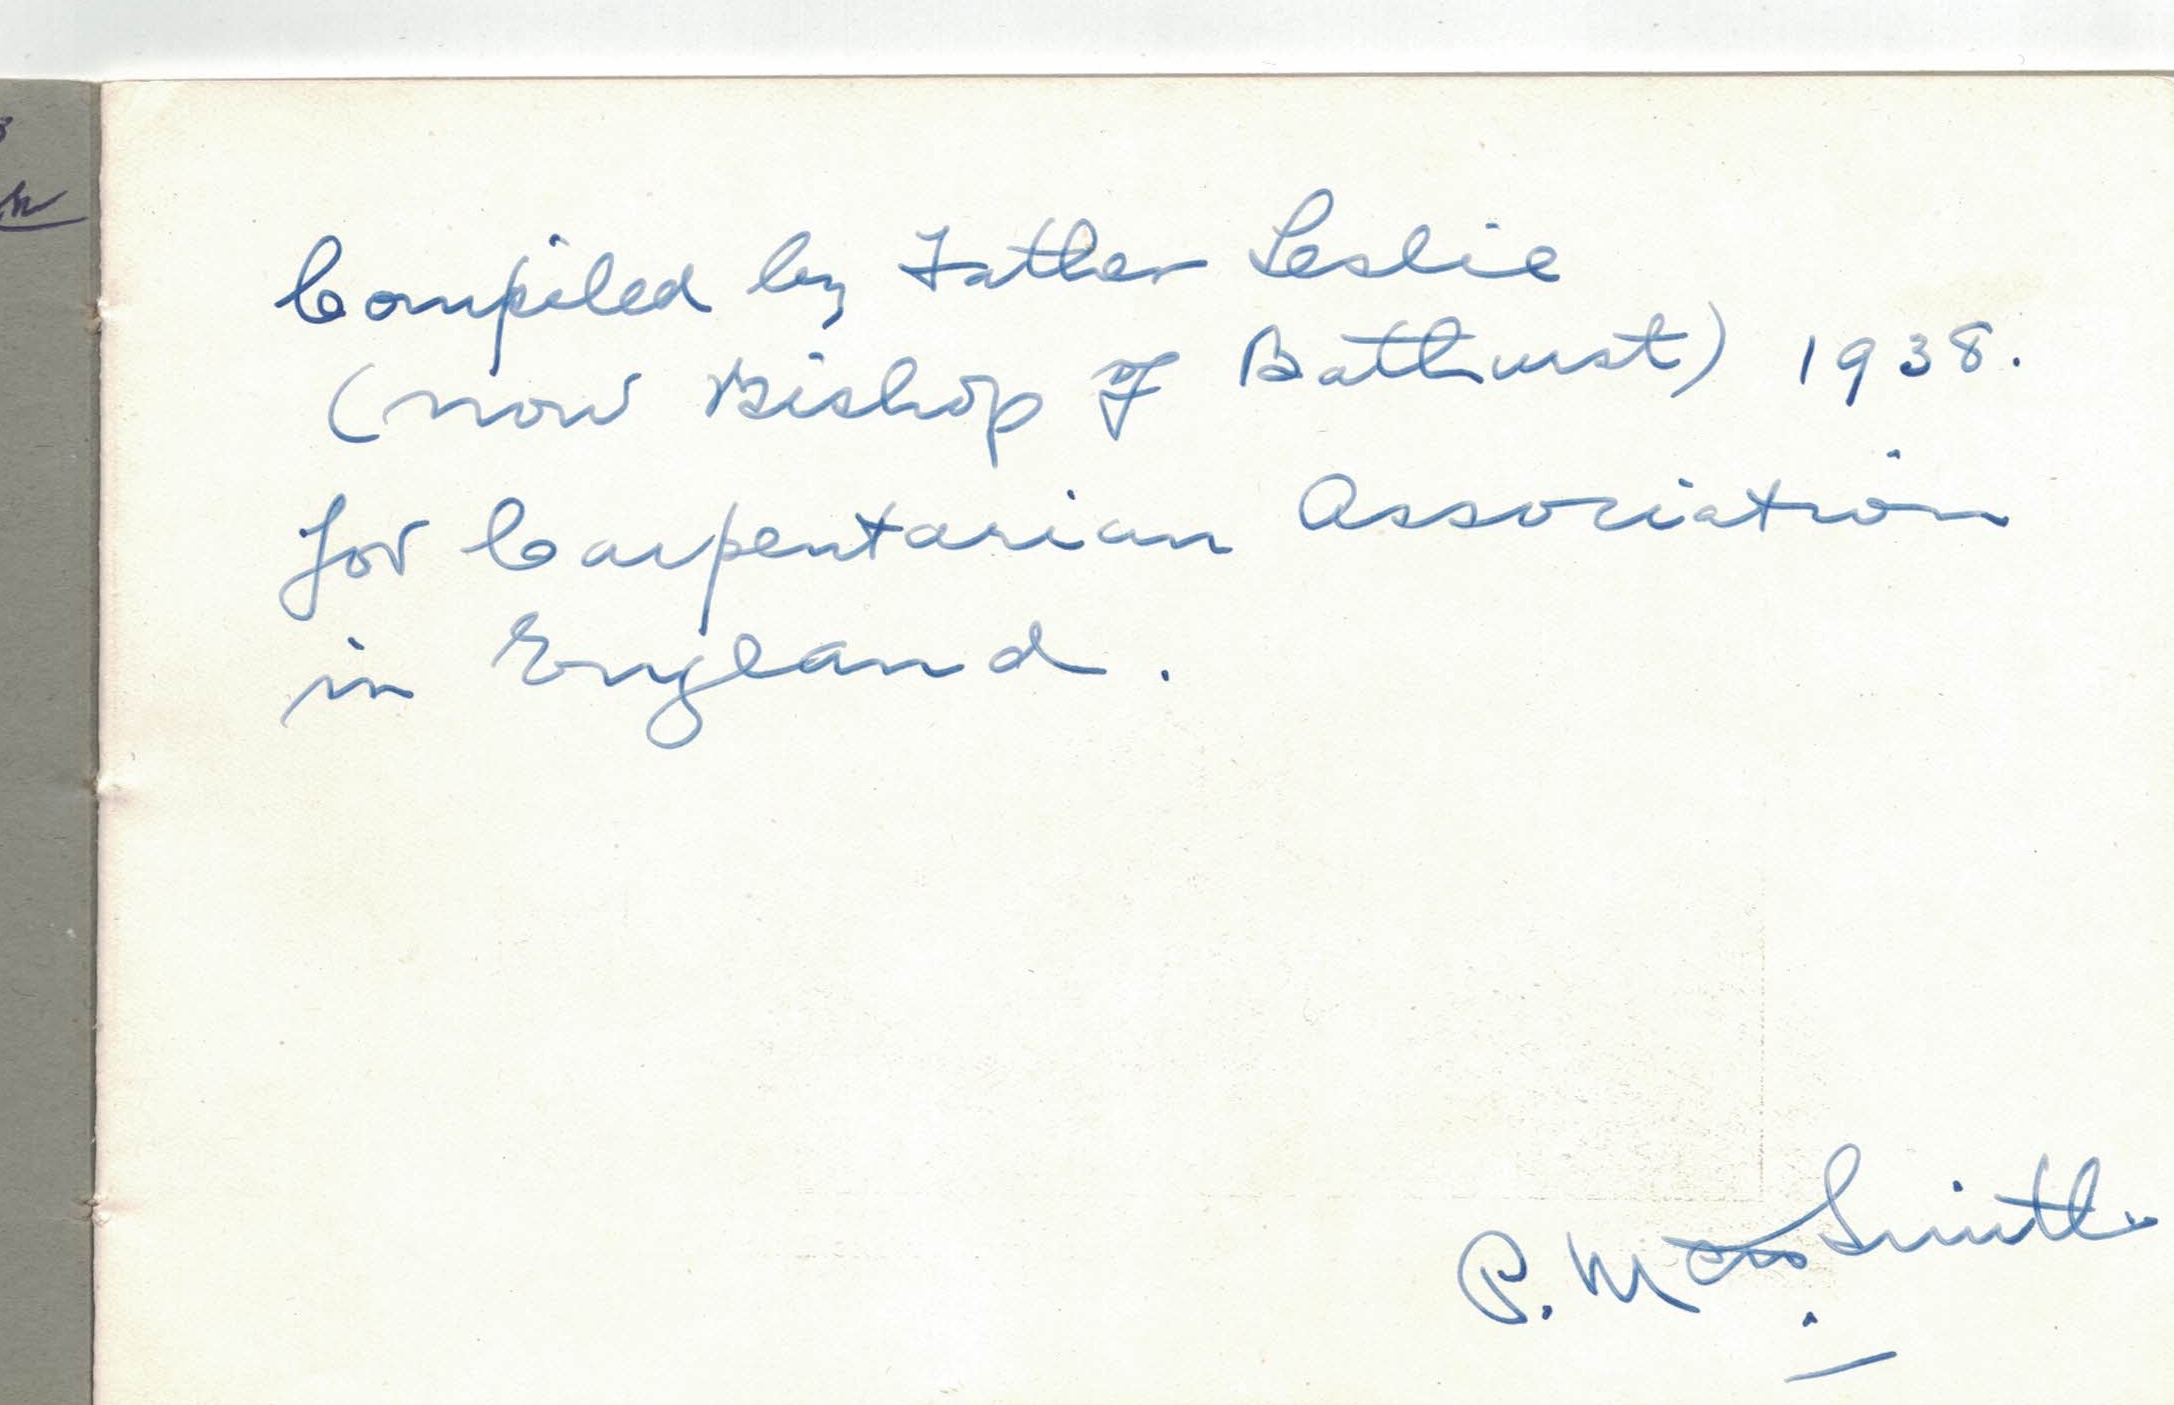 Compiled by Father Leslie
(now Bishop of Bathurst) 1938.
for Carpentarian Association
in England.
P. M Smith